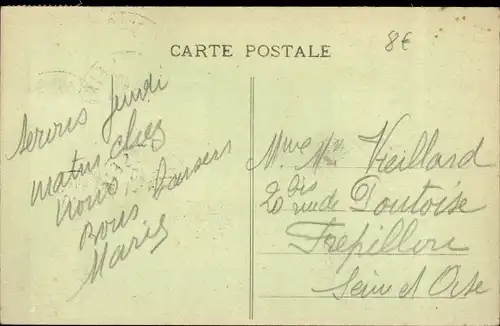 CARTE POSTALE
8€
Serons Jeudi
matin chez
nous. Baisers
Bons
Marie
Mme Vieillard
20 bis rue de Pontoise
Frépillon
Seine et Oise